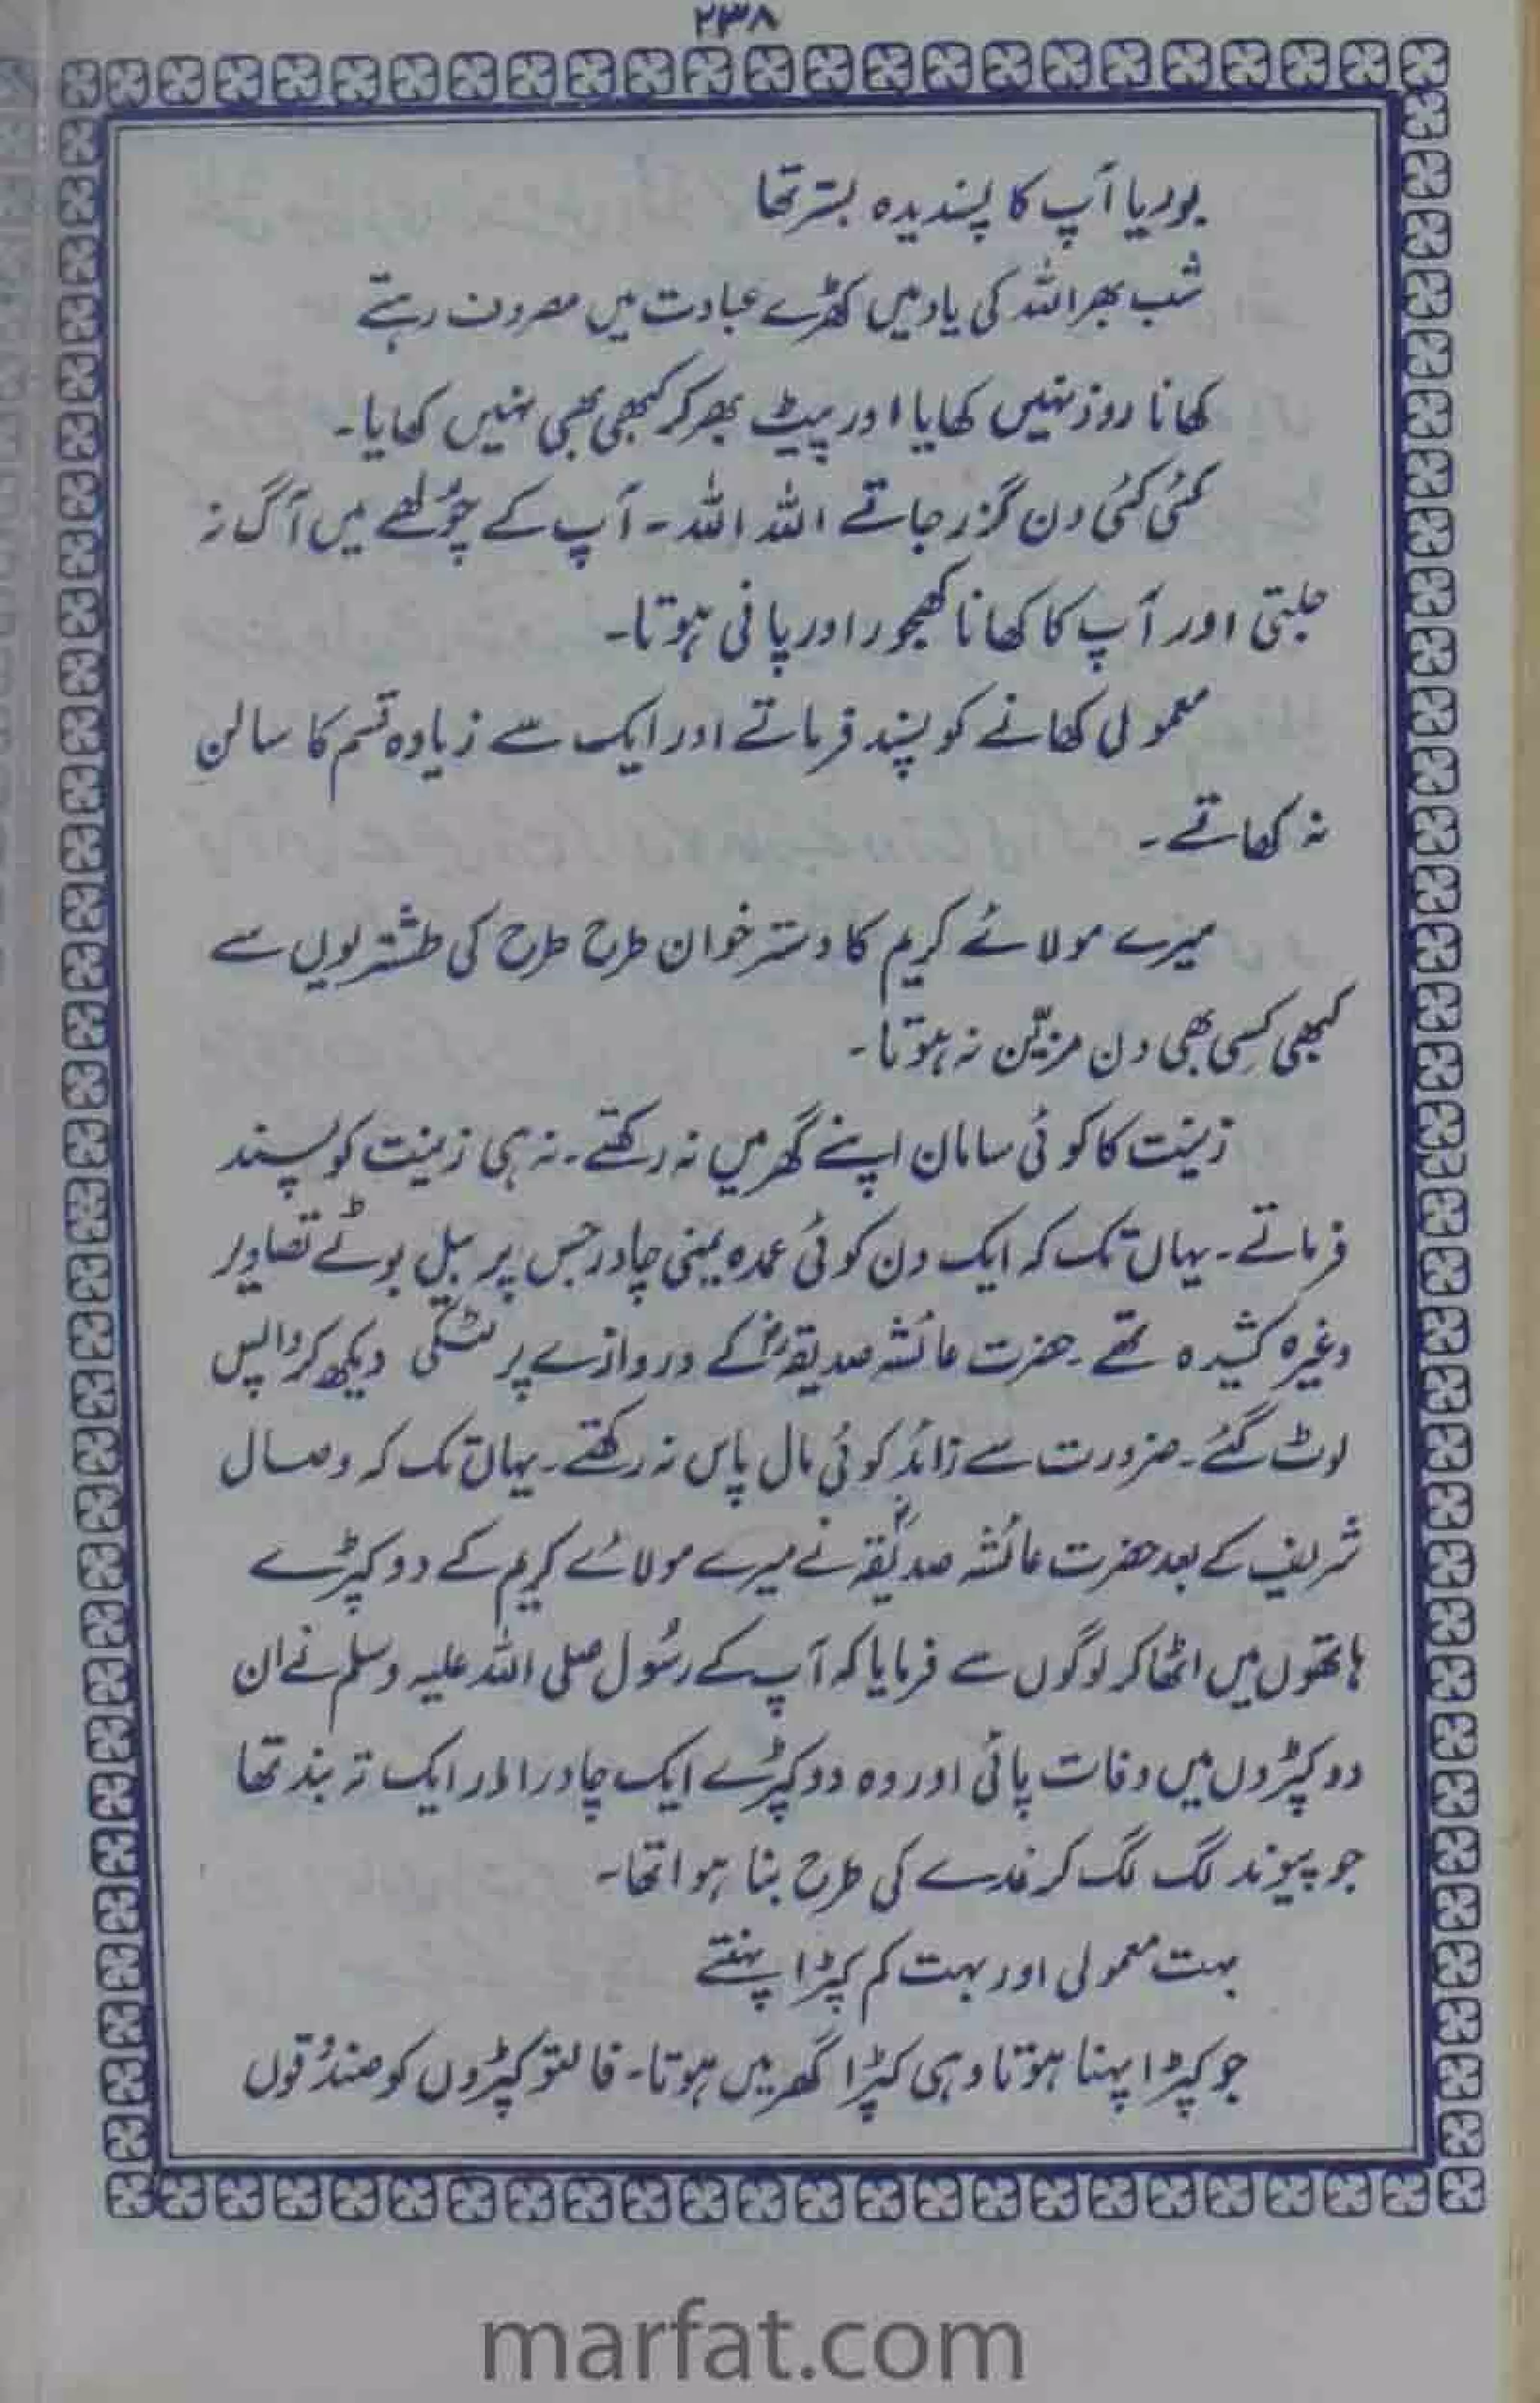 ۲۳۸
بوریا آپ کا پسندیدہ بستر تھا
شب بھر اللہ کی یاد میں کھڑے عبادت میں مصروف رہتے
کھانا روز نہیں کھایا اور پیٹ بھر کر کبھی بھی نہیں کھایا۔
کئی کئی دن گزر جاتے اللہ اللہ ۔ آپ کے چولھے میں آگ نہ
جلتی اور آپ کا کھانا کھجور اور پانی ہوتا۔
معمولی کھانے کو پسند فرماتے اور ایک سے زیادہ قسم کا سالن
نہ کھاتے ۔
میرے مولائے کریم کا دستر خوان طرح طرح کی طشتریوں سے
کبھی کسی بھی دن مزیّن نہ ہوتا۔
زینت کا کوئی سامان اپنے گھر میں نہ رکھتے۔ نہ ہی زینت کو پسند
فرماتے۔ یہاں تک کہ ایک دن کوئی عمدہ یمنی چادر جس پر بیل بوٹے تصاویر
وغیرہ کشیدہ تھے۔ حضرت عائشہ صدیقہؓ کے دروازے پر لٹکی دیکھ کر واپس
لوٹ گئے۔ ضرورت سے زائد کوئی مال پاس نہ رکھتے۔ یہاں تک کہ وصال
شریف کے بعد حضرت عائشہ صدیقہؓ نے میرے مولائے کریم کے دو کپڑے
ہاتھوں میں اٹھا کر لوگوں سے فرمایا کہ آپ کے رسُول صلی اللہ علیہ وسلم نے ان
دو کپڑوں میں وفات پائی اور وہ دو کپڑے ایک چادر اور ایک تہ بند تھا
جو پیوند لگ لگ کر نمدے کی طرح بنا ہوا تھا۔
بہت معمولی اور بہت کم کپڑا پہنتے
جو کپڑا پہنا ہوتا وہی کپڑا گھر میں ہوتا۔ فالتو کپڑوں کو صندُوقوں
marfat.com